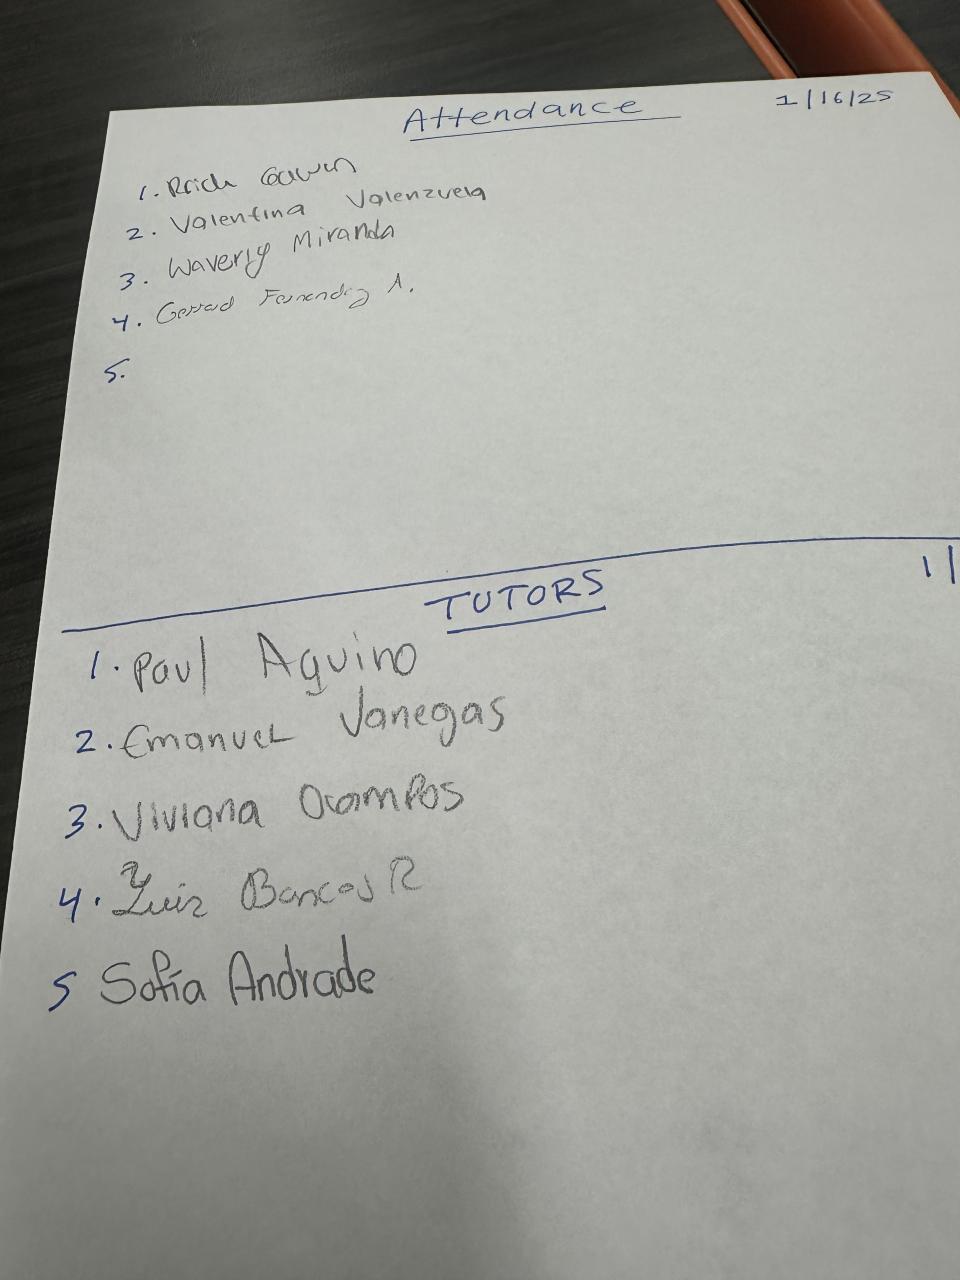 Attendance 1/16/25
1.
2. Valentina Valenzuela
3. Waverly Miranda
4. Gerrard Fernandez A.
5.
TUTORS 1/
1. Paul Aquino
2. Emanuel Vanegas
3. Viviana Ocampos
4. Luiz R
5 Sofía Andrade